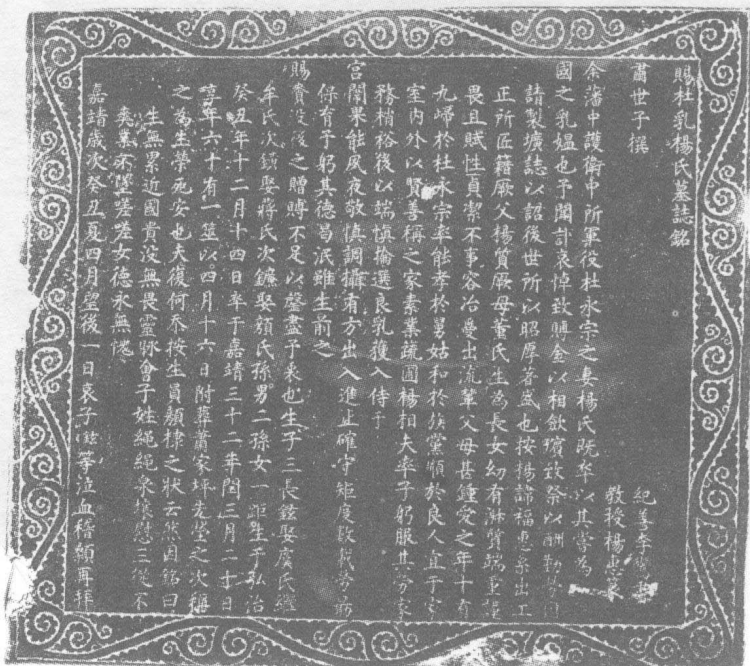 賜杜乳楊氏墓誌銘
肅世子撰　紀善李
教授楊惠篆
余藩中護衛中所軍役杜永宗之妻楊氏既卒以其嘗為
國之乳媼也予聞訃哀悼致賻金以相斂殯致祭以酬勤勞
請製壙誌以詔後世所以昭厚著感也按楊諱福惠系出工
正所匠籍厥父楊質厥母董氏生為長女幼有淑質端重謹
畏且賦性貞潔不事容冶蔓出流輩父母甚鍾愛之年十有
九歸於杜永宗率能孝於舅姑和於族黨順於良人宜于家
室內外以賢善稱之家素業蔬圃楊相夫率子躬服其勞家
務稍裕後以端慎掄選良乳獲入侍于
宮闈果能夙夜敬慎調攝有方出入進止確守矩度數載勞
保育予躬其德曷泯雖生前之
賜賚歿後之贈賻不足以罄盡予衷也生子三長鋌娶廣氏繼
牟氏次鋐娶蔣氏次鐮娶顏氏孫男二孫女一距生于弘治
癸丑年十二月十四日卒于嘉靖三十二年閏三月二十日
享年六十有一筮以四月十六日附葬蕭家坪先塋之次稱
之為生榮死安也夫復何忝按生員顏棣之狀云然因銘曰
生無累近國貴沒無畏靈弥會子姓繩繩眾攘慰三從不
爽業不墜嗟嗟女德永無愧
嘉靖歲次癸丑夏四月望後一日哀子鋐等泣血稽顙再拜